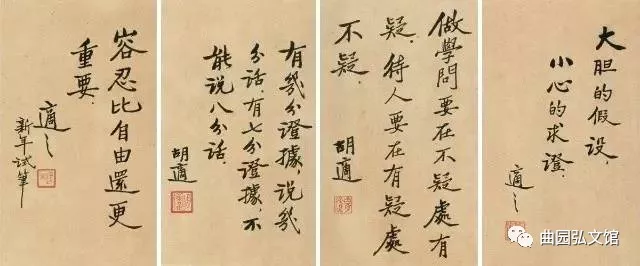 容忍比自由還更
重要.
適之
新年试筆
有幾分證據，説幾
分话.有七分證據，不
能说八分话.
胡適
做學問要在不疑處有
疑，待人要在有疑處
不疑.
胡適
大胆的假設，
小心的求證.
適之
曲园弘文馆